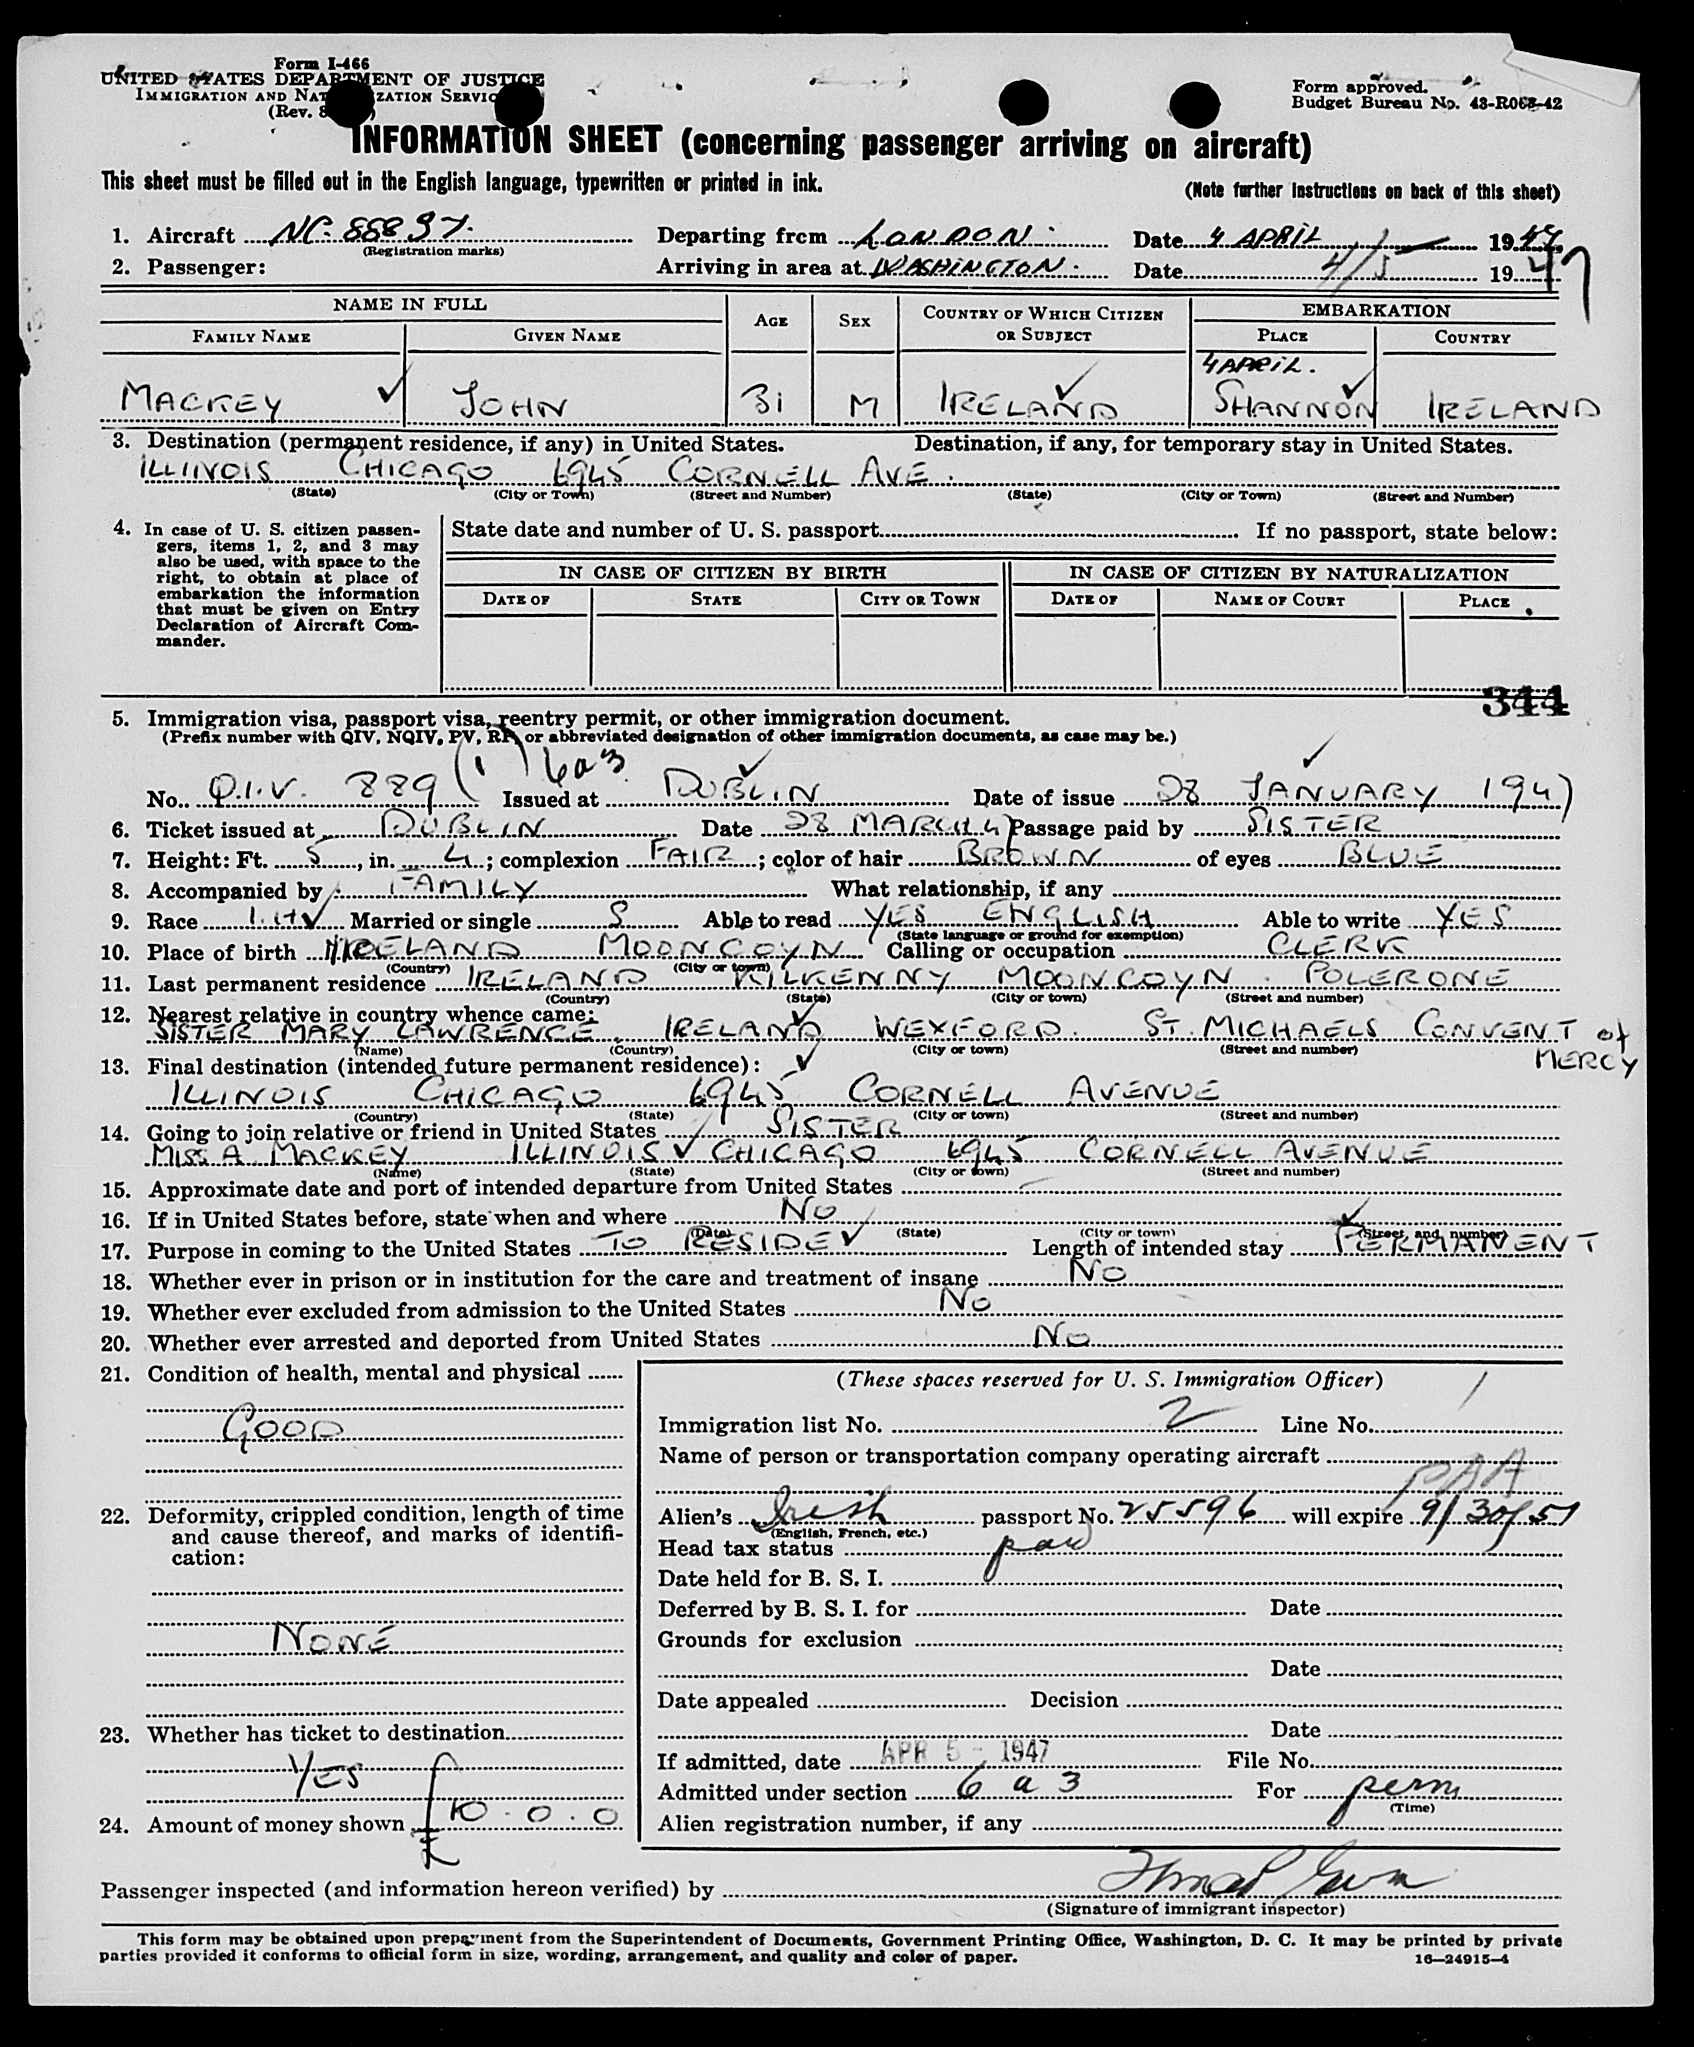 Form I-466
UNITED STATES DEPARTMENT OF JUSTICE
IMMIGRATION AND NATURALIZATION SERVICE
(Rev. 8
Form approved.
Budget Bureau No. 43-R068-42
INFORMATION SHEET (concerning passenger arriving on aircraft)
This sheet must be filled out in the English language, typewritten or printed in ink.
(Note further instructions on back of this sheet)
1. Aircraft NC. 88837. Departing from LONDON. Date 4 APRIL 1947
(Registration marks)
2. Passenger: Arriving in area at WASHINGTON. Date 4/5 1947
NAME IN FULL AGE SEX COUNTRY OF WHICH CITIZEN OR SUBJECT EMBARKATION
FAMILY NAME GIVEN NAME PLACE COUNTRY
4 APRIL.
MACKEY JOHN 31 M IRELAND SHANNON IRELAND
3. Destination (permanent residence, if any) in United States. Destination, if any, for temporary stay in United States.
ILLINOIS CHICAGO 6945 CORNELL AVE.
(State) (City or Town) (Street and Number) (State) (City or Town) (Street and Number)
4. In case of U. S. citizen passen-
gers, items 1, 2, and 3 may
also be used, with space to the
right, to obtain at place of
embarkation the information
that must be given on Entry
Declaration of Aircraft Com-
mander.
State date and number of U. S. passport If no passport, state below:
IN CASE OF CITIZEN BY BIRTH IN CASE OF CITIZEN BY NATURALIZATION
DATE OF STATE CITY OR TOWN DATE OF NAME OF COURT PLACE
344
5. Immigration visa, passport visa, reentry permit, or other immigration document.
(Prefix number with QIV, NQIV, PV, RP, or abbreviated designation of other immigration documents, as case may be.)
No. Q.I.V. 889 (1) 6a3 Issued at DUBLIN Date of issue 28 JANUARY 1947
6. Ticket issued at DUBLIN Date 28 MARCH 47 Passage paid by SISTER
7. Height: Ft. 5, in. 4; complexion FAIR; color of hair BROWN of eyes BLUE
8. Accompanied by FAMILY What relationship, if any
9. Race Married or single S Able to read YES ENGLISH Able to write YES
(State language or ground for exemption)
10. Place of birth IRELAND MOONCOYN Calling or occupation CLERK
(Country) (City or town)
11. Last permanent residence IRELAND KILKENNY MOONCOYN. POLERONE
(Country) (State) (City or town) (Street and number)
12. Nearest relative in country whence came:
SISTER MARY LAWRENCE. IRELAND WEXFORD. ST. MICHAELS CONVENT of MERCY
(Name) (Country) (City or town) (Street and number)
13. Final destination (intended future permanent residence):
ILLINOIS CHICAGO 6945 CORNELL AVENUE
(Country) (State) (City or town) (Street and number)
14. Going to join relative or friend in United States SISTER
MISS A MACKEY ILLINOIS CHICAGO 6945 CORNELL AVENUE
(Name) (State) (City or town) (Street and number)
15. Approximate date and port of intended departure from United States
16. If in United States before, state when and where NO
(Date) (State) (City or town) (Street and number)
17. Purpose in coming to the United States TO RESIDE Length of intended stay PERMANENT
18. Whether ever in prison or in institution for the care and treatment of insane NO
19. Whether ever excluded from admission to the United States NO
20. Whether ever arrested and deported from United States NO
21. Condition of health, mental and physical
GOOD
22. Deformity, crippled condition, length of time
and cause thereof, and marks of identifi-
cation:
NONE
23. Whether has ticket to destination
YES
24. Amount of money shown £10.0.0
(These spaces reserved for U. S. Immigration Officer)
Immigration list No. 2 Line No. 1
Name of person or transportation company operating aircraft
PAA
Alien's Irish passport No. 25596 will expire 9/30/51
(English, French, etc.)
Head tax status paid
Date held for B. S. I.
Deferred by B. S. I. for Date
Grounds for exclusion
Date
Date appealed Decision
Date
If admitted, date APR 5 - 1947 File No.
Admitted under section 6 a 3 For perm
(Time)
Alien registration number, if any
Passenger inspected (and information hereon verified) by
(Signature of immigrant inspector)
This form may be obtained upon prepayment from the Superintendent of Documents, Government Printing Office, Washington, D. C. It may be printed by private
parties provided it conforms to official form in size, wording, arrangement, and quality and color of paper.
16—24915-4